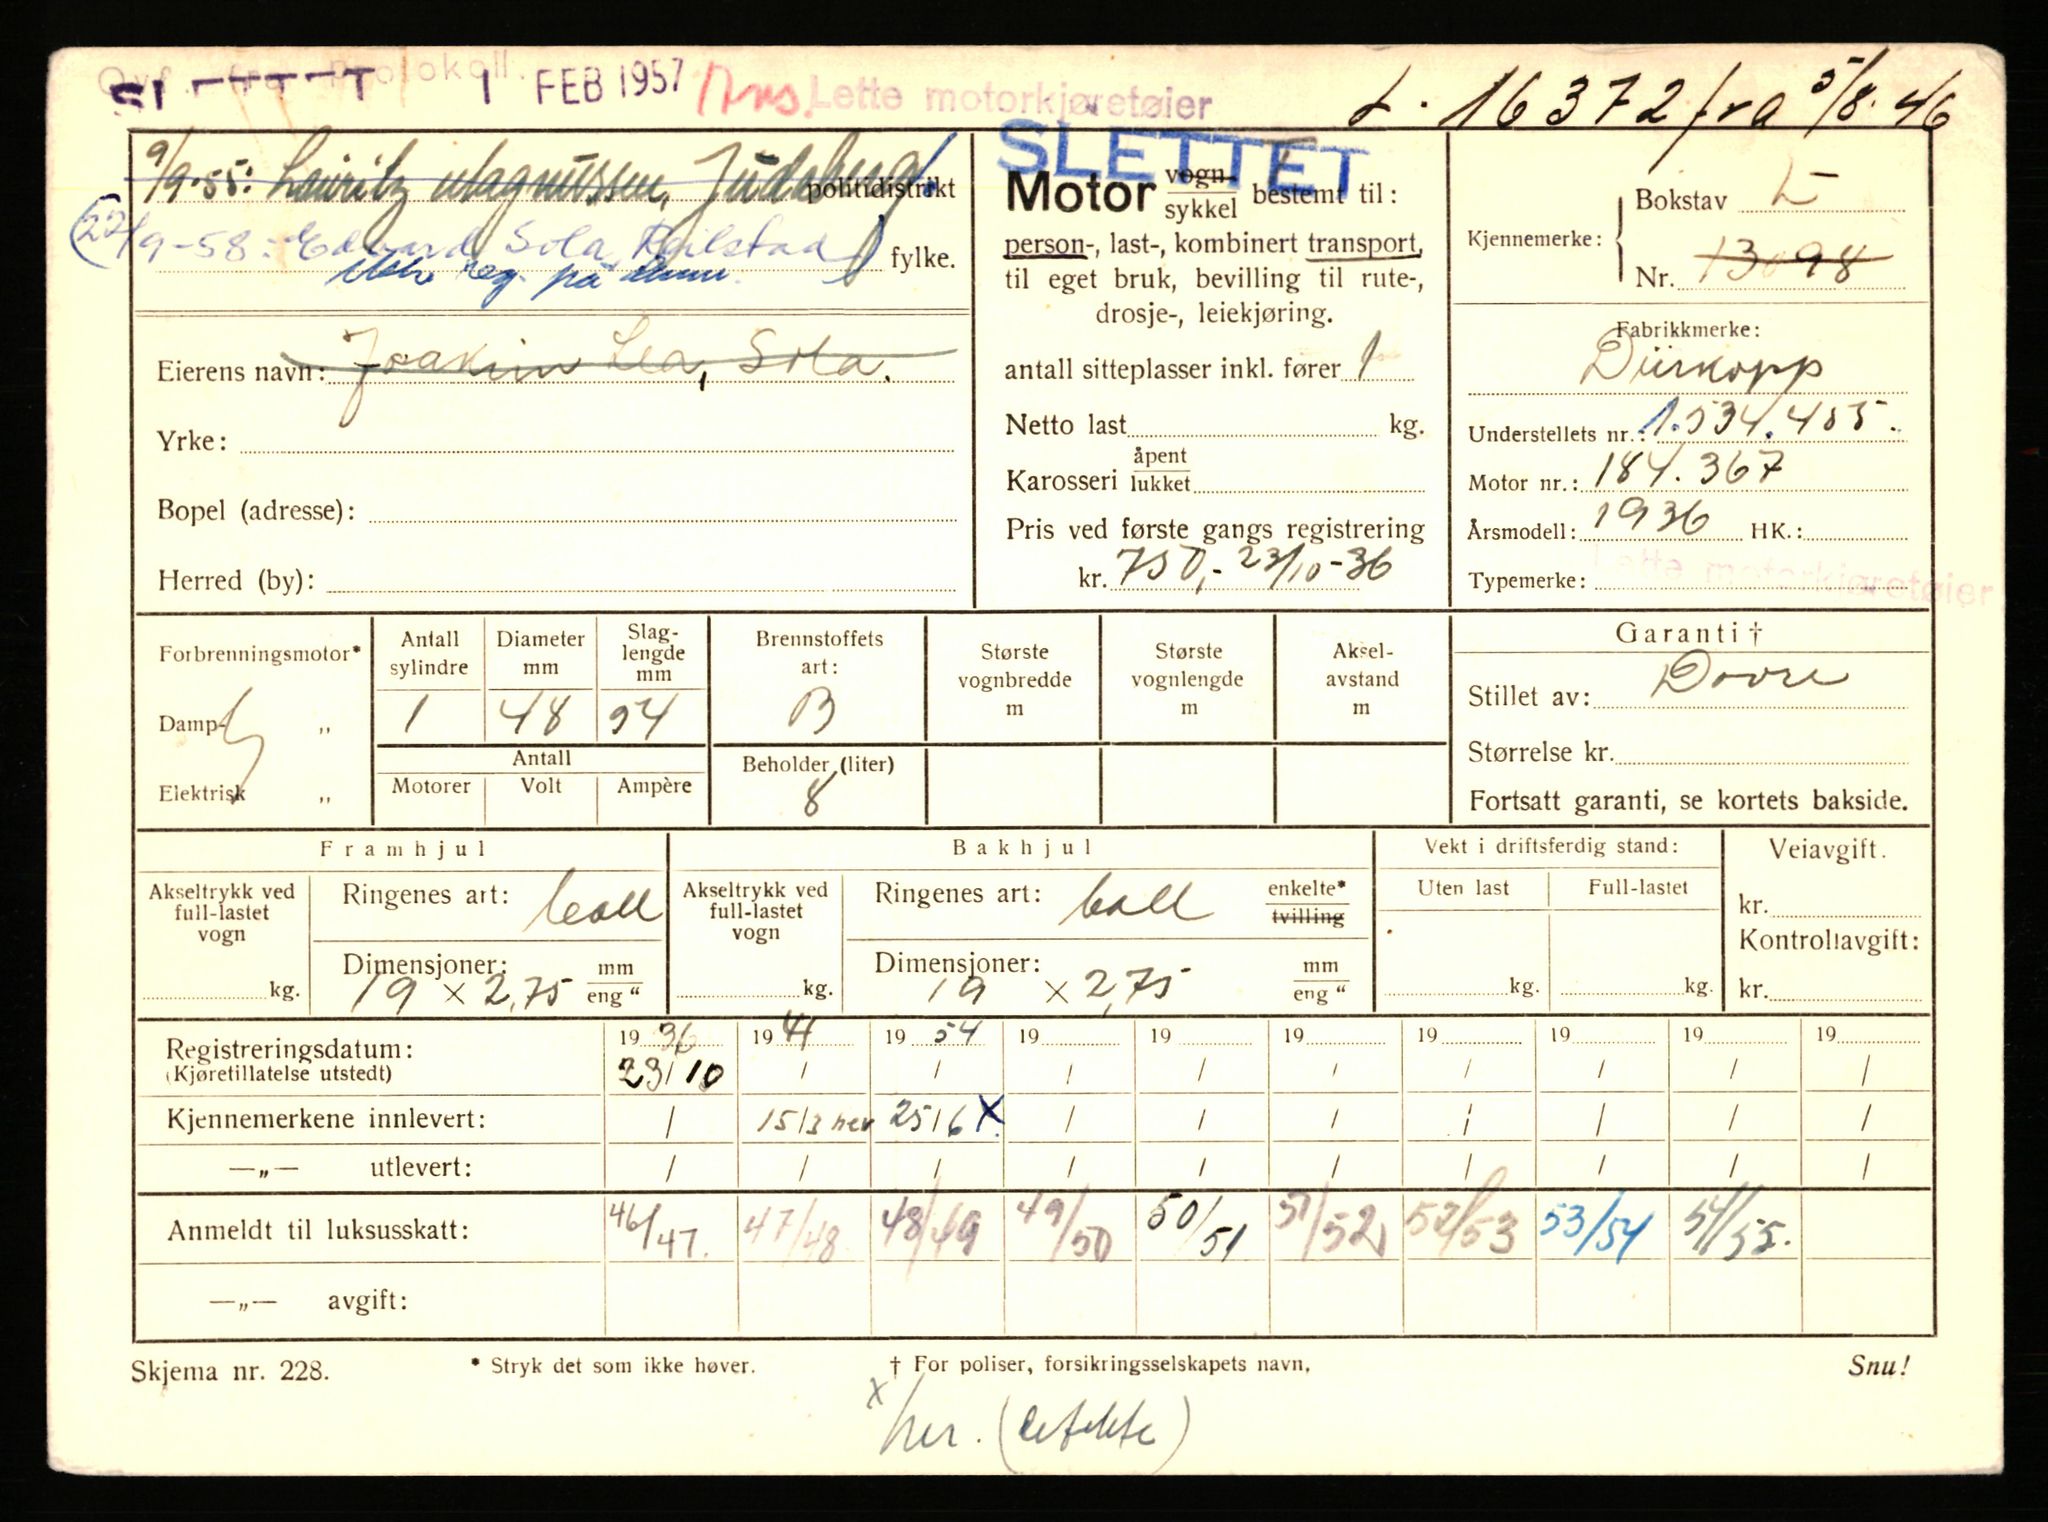 Ovf. fra Protokoll.
SLETTET 1 FEB 1957 Lette motorkjøretøier L. 16372 fra 5/8.46
SLETTET
9/9-55: Lauritz Magnussen, politidistrikt
22/9-58: Edvard Sola, fylke.
ikke reg. på
Eierens navn: Joakim Lea, Sola.
Yrke:
Bopel (adresse):
Herred (by):
Motor vogn sykkel bestemt til:
person-, last-, kombinert transport,
til eget bruk, bevilling til rute-,
drosje-, leiekjøring.
antall sitteplasser inkl. fører 1
Netto last kg.
Karosseri åpent lukket
Pris ved første gangs registrering
kr. 750,- 23/10-36
Kjennemerke: Bokstav L
Nr. 13098
Fabrikkmerke:
Dürkopp
Understellets nr.: 1.534.455.
Motor nr.: 184.367
Årsmodell: 1936 HK.:
Lette motorkjøretøier
Typemerke:
Forbrenningsmotor*
Damp- „
Elektrisk „
Antall sylindre Diameter mm Slag-lengde mm
1 48 54
Antall
Motorer Volt Ampère
Brennstoffets art:
B
Beholder (liter)
8
Største vognbredde m
Største vognlengde m
Aksel-avstand m
Garanti †
Stillet av: Dovre
Størrelse kr.
Fortsatt garanti, se kortets bakside.
Framhjul Bakhjul Vekt i driftsferdig stand: Veiavgift.
Akseltrykk ved full-lastet vogn kg.
Ringenes art: ball
Dimensjoner: mm eng “
19 × 2,75
Akseltrykk ved full-lastet vogn kg.
Ringenes art: ball enkelte* tvilling
Dimensjoner: mm eng “
19 × 2,75
Uten last kg. Full-lastet kg.
kr.
Kontrollavgift:
kr.
Registreringsdatum: 19 36 19 41 19 54 19 19 19 19 19 19 19
(Kjøretillatelse utstedt) 23/10 / / / / / / / / /
Kjennemerkene innlevert: / 15/3 her 25/6 X / / / / / / /
—„— utlevert: / / / / / / / / / /
Anmeldt til luksusskatt: 46/47. 47/48 48/49 49/50 50/51 51/52 52/53 53/54 54/55.
—„— avgift:
Skjema nr. 228. * Stryk det som ikke høver. † For poliser, forsikringsselskapets navn. Snu!
x her. (defekte)